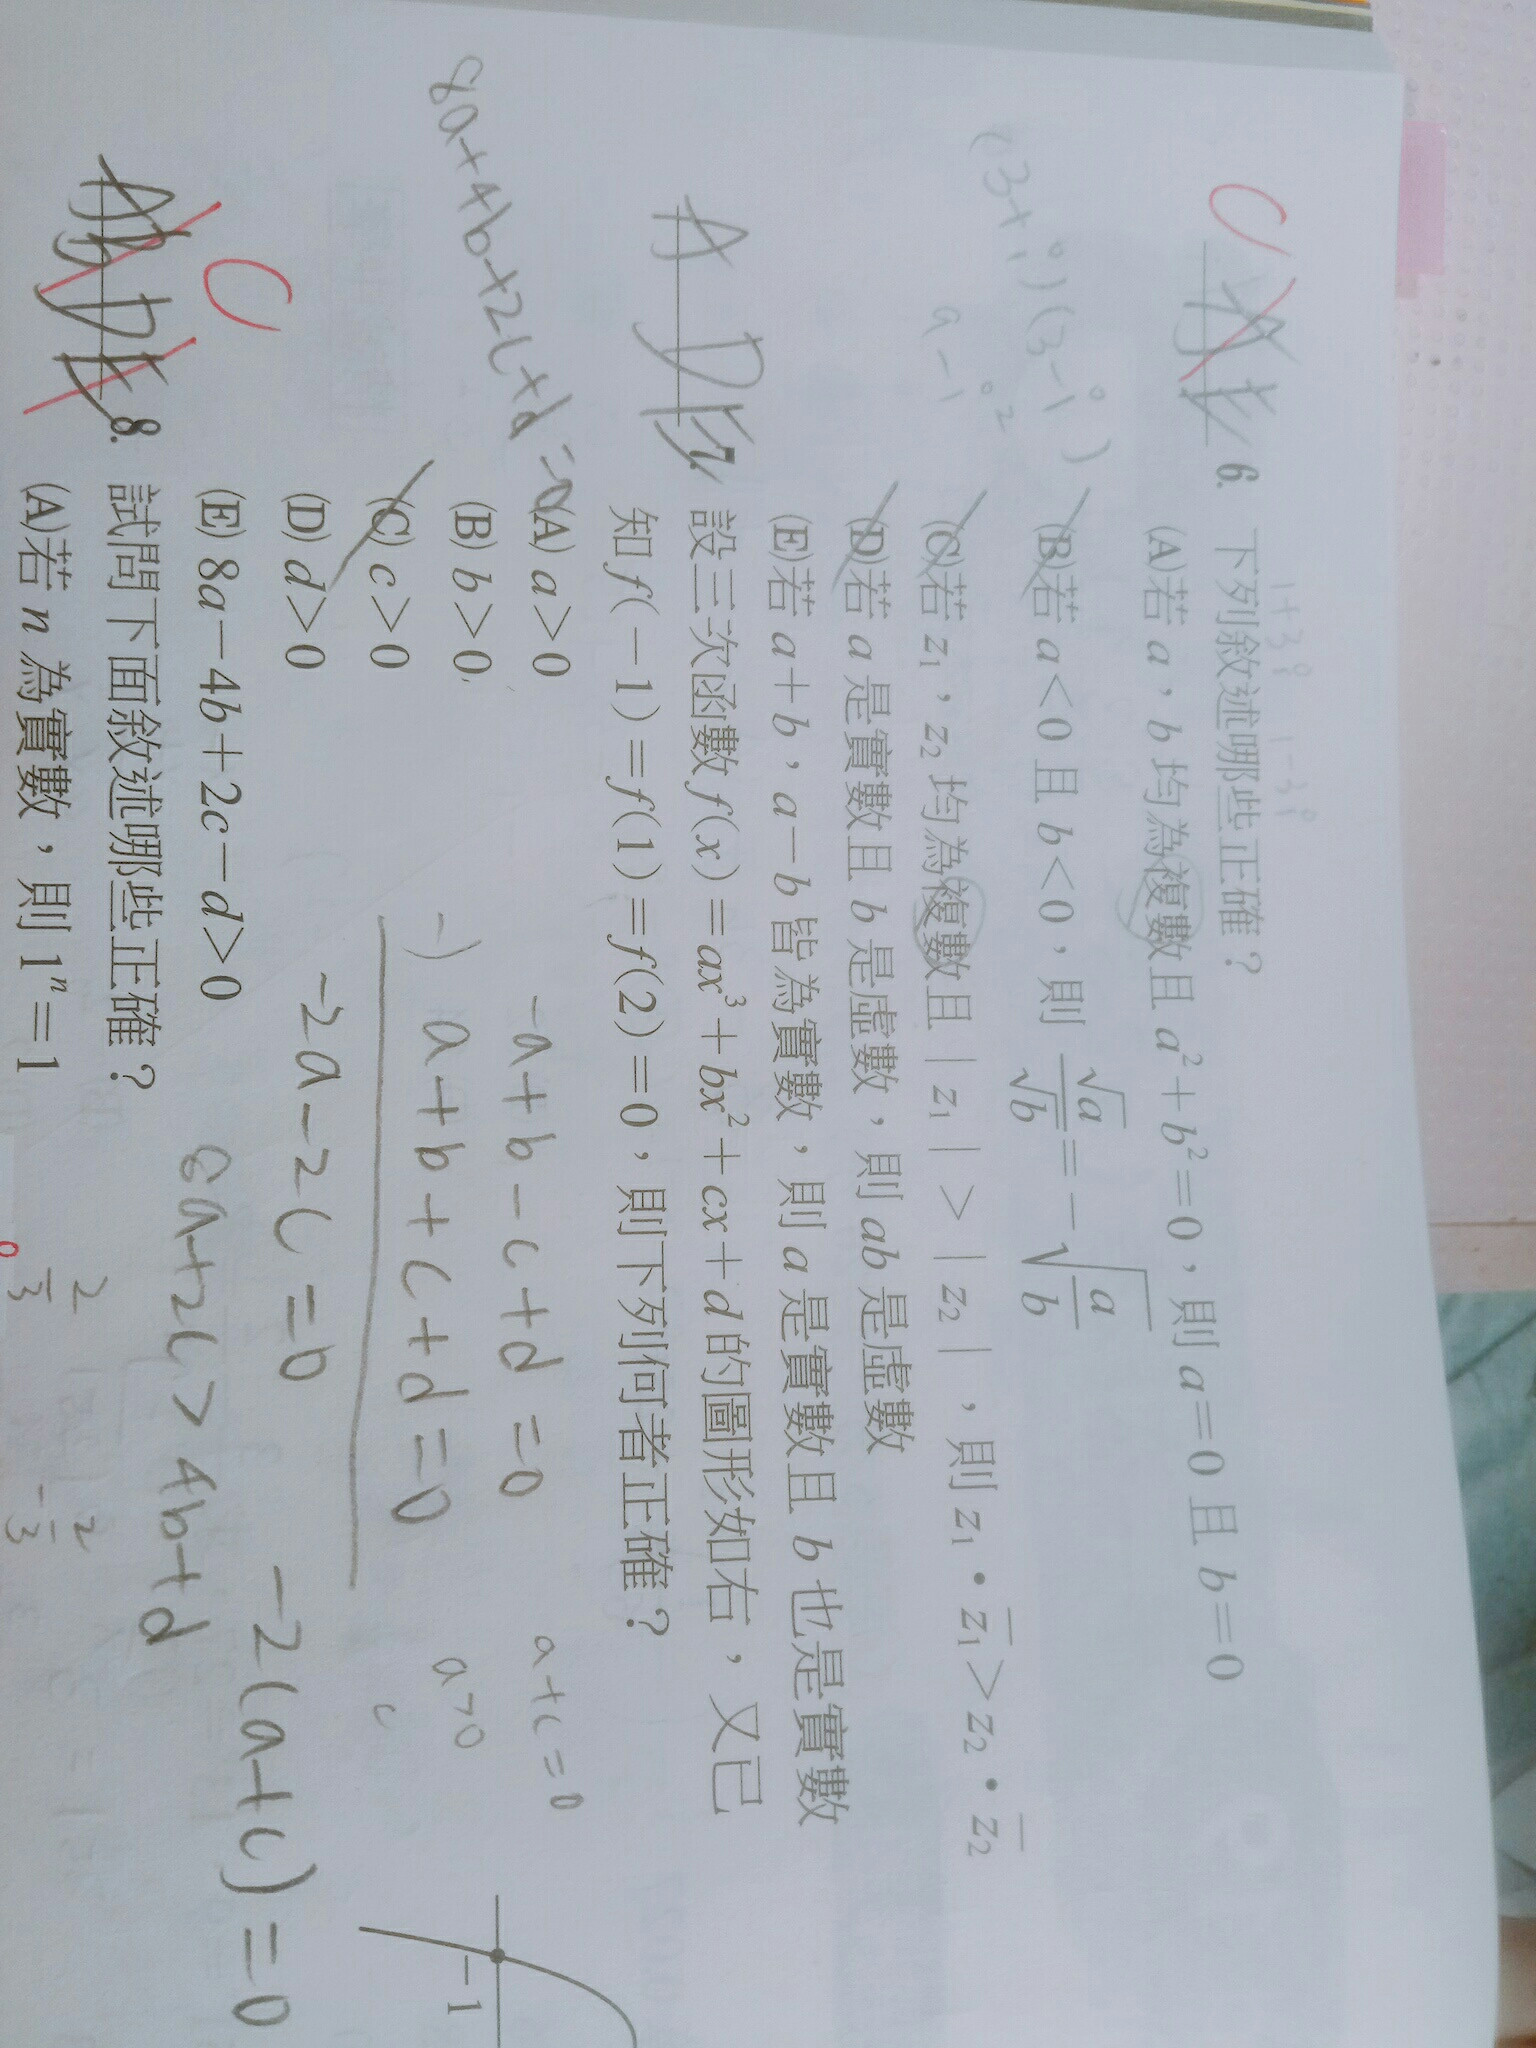 1+3i 1-3i
6. 下列敘述哪些正確？
(A)若 a，b 均為複數且 a²+b²=0，則 a=0 且 b=0
(3+i)(3-i)
(B)若 a<0 且 b<0，則 √a/√b=-√(a/b)
(C)若 z₁，z₂ 均為複數且｜z₁｜>｜z₂｜，則 z₁・z̅₁>z₂・z̅₂
(D)若 a 是實數且 b 是虛數，則 ab 是虛數
(E)若 a+b，a-b 皆為實數，則 a 是實數且 b 也是實數
設三次函數 f(x)=ax³+bx²+cx+d 的圖形如右，又已
知 f(-1)=f(1)=f(2)=0，則下列何者正確？
8a+4b+2c+d=0
(A) a>0
-a+b-c+d=0
a+c=0
(B) b>0
-) a+b+c+d=0
a>0
(C) c>0
c
-1
(D) d>0
-2a-2c=0
-2(a+c)=0
(E) 8a-4b+2c-d>0
8a+2c>4b+d
C
8. 試問下面敘述哪些正確？
(A)若 n 為實數，則 1ⁿ=1